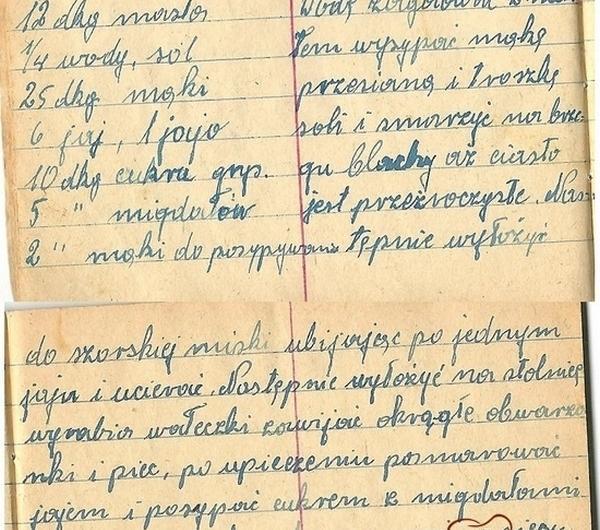 12 dkg masła
1/4 wody, sól
25 dkg mąki
6 jaj, 1 jajo
10 dkg cukru gryp.
5 " migdałów
2 " mąki do posypywania
Wodę zagotować z
tem wysypać mąkę
przesianą i troszkę
soli i smarzyć na brze-
gu blachy aż ciasto
jest przeźroczyste. Nas-
tępnie wyłożyć
do szorskiej miski ubijając po jednym
jaju i ucierać. Następnie wyłożyć na stolnicę
wyrabia wałeczki zawijać okrągłe obwarza
nki i piec, po upieczeniu posmarować
jajem i posypać cukrem z migdałami.